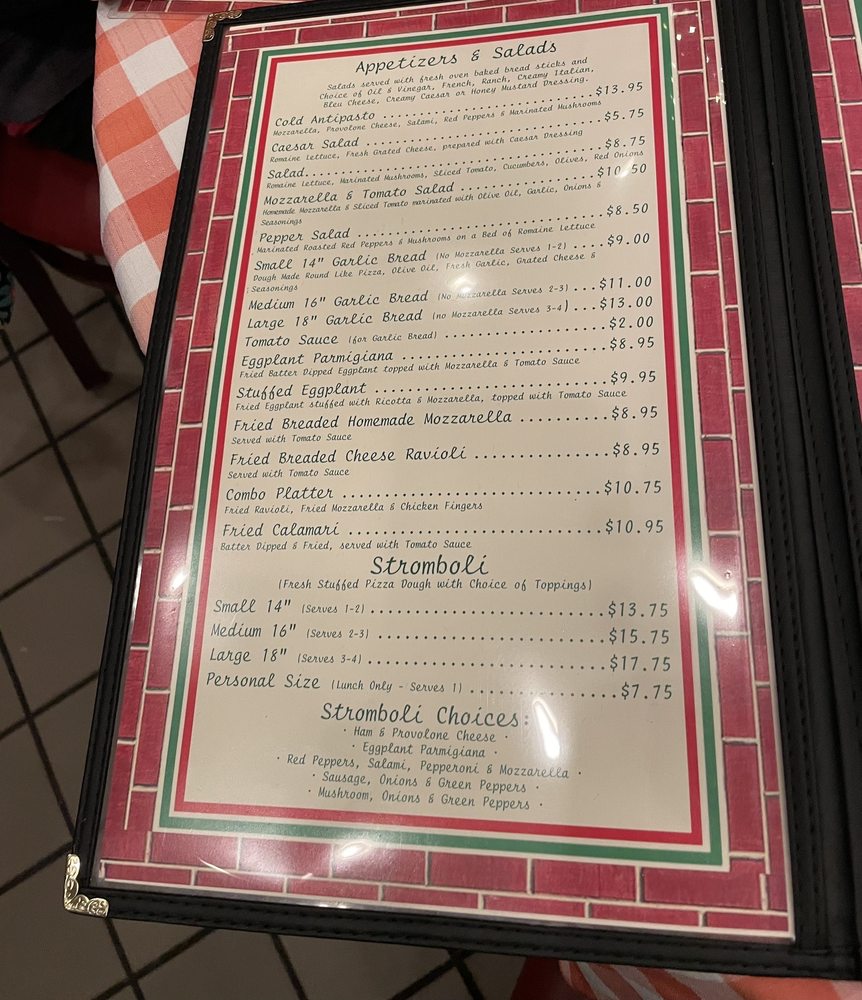 Appetizers & Salads
Salads served with fresh oven baked bread sticks and
Choice of Oil & Vinegar, French, Ranch, Creamy Italian,
Bleu Cheese, Creamy Caesar or Honey Mustard Dressing.
Cold Antipasto ........................$13.95
Mozzarella, Provolone Cheese, Salami, Red Peppers & Marinated Mushrooms
Caesar Salad ........................$5.75
Romaine Lettuce, Fresh Grated Cheese, prepared with Caesar Dressing
Salad........................$8.75
Romaine Lettuce, Marinated Mushrooms, Sliced Tomato, Cucumbers, Olives, Red Onions
Mozzarella & Tomato Salad ................$10.50
Homemade Mozzarella & Sliced Tomato marinated with Olive Oil, Garlic, Onions &
Seasonings
Pepper Salad ........................$8.50
Marinated Roasted Red Peppers & Mushrooms on a Bed of Romaine Lettuce
Small 14" Garlic Bread (No Mozzarella Serves 1-2) ....$9.00
Dough Made Round Like Pizza, Olive Oil, Fresh Garlic, Grated Cheese &
Seasonings
Medium 16" Garlic Bread (No Mozzarella Serves 2-3) ...$11.00
Large 18" Garlic Bread (no Mozzarella Serves 3-4) ...$13.00
Tomato Sauce (for Garlic Bread) ....................$2.00
Eggplant Parmigiana ........................$8.95
Fried Batter Dipped Eggplant topped with Mozzarella & Tomato Sauce
Stuffed Eggplant ...........................$9.95
Fried Eggplant stuffed with Ricotta & Mozzarella, topped with Tomato Sauce
Fried Breaded Homemade Mozzarella ..........$8.95
Served with Tomato Sauce
Fried Breaded Cheese Ravioli ...............$8.95
Served with Tomato Sauce
Combo Platter ..............................$10.75
Fried Ravioli, Fried Mozzarella & Chicken Fingers
Fried Calamari .............................$10.95
Batter Dipped & Fried, served with Tomato Sauce
Stromboli
(Fresh Stuffed Pizza Dough with Choice of Toppings)
Small 14" (Serves 1-2) ...........................$13.75
Medium 16" (Serves 2-3) ..........................$15.75
Large 18" (Serves 3-4) ...........................$17.75
Personal Size (Lunch Only - Serves 1) ................$7.75
Stromboli Choices:
· Ham & Provolone Cheese ·
· Eggplant Parmigiana ·
· Red Peppers, Salami, Pepperoni & Mozzarella ·
· Sausage, Onions & Green Peppers ·
· Mushroom, Onions & Green Peppers ·